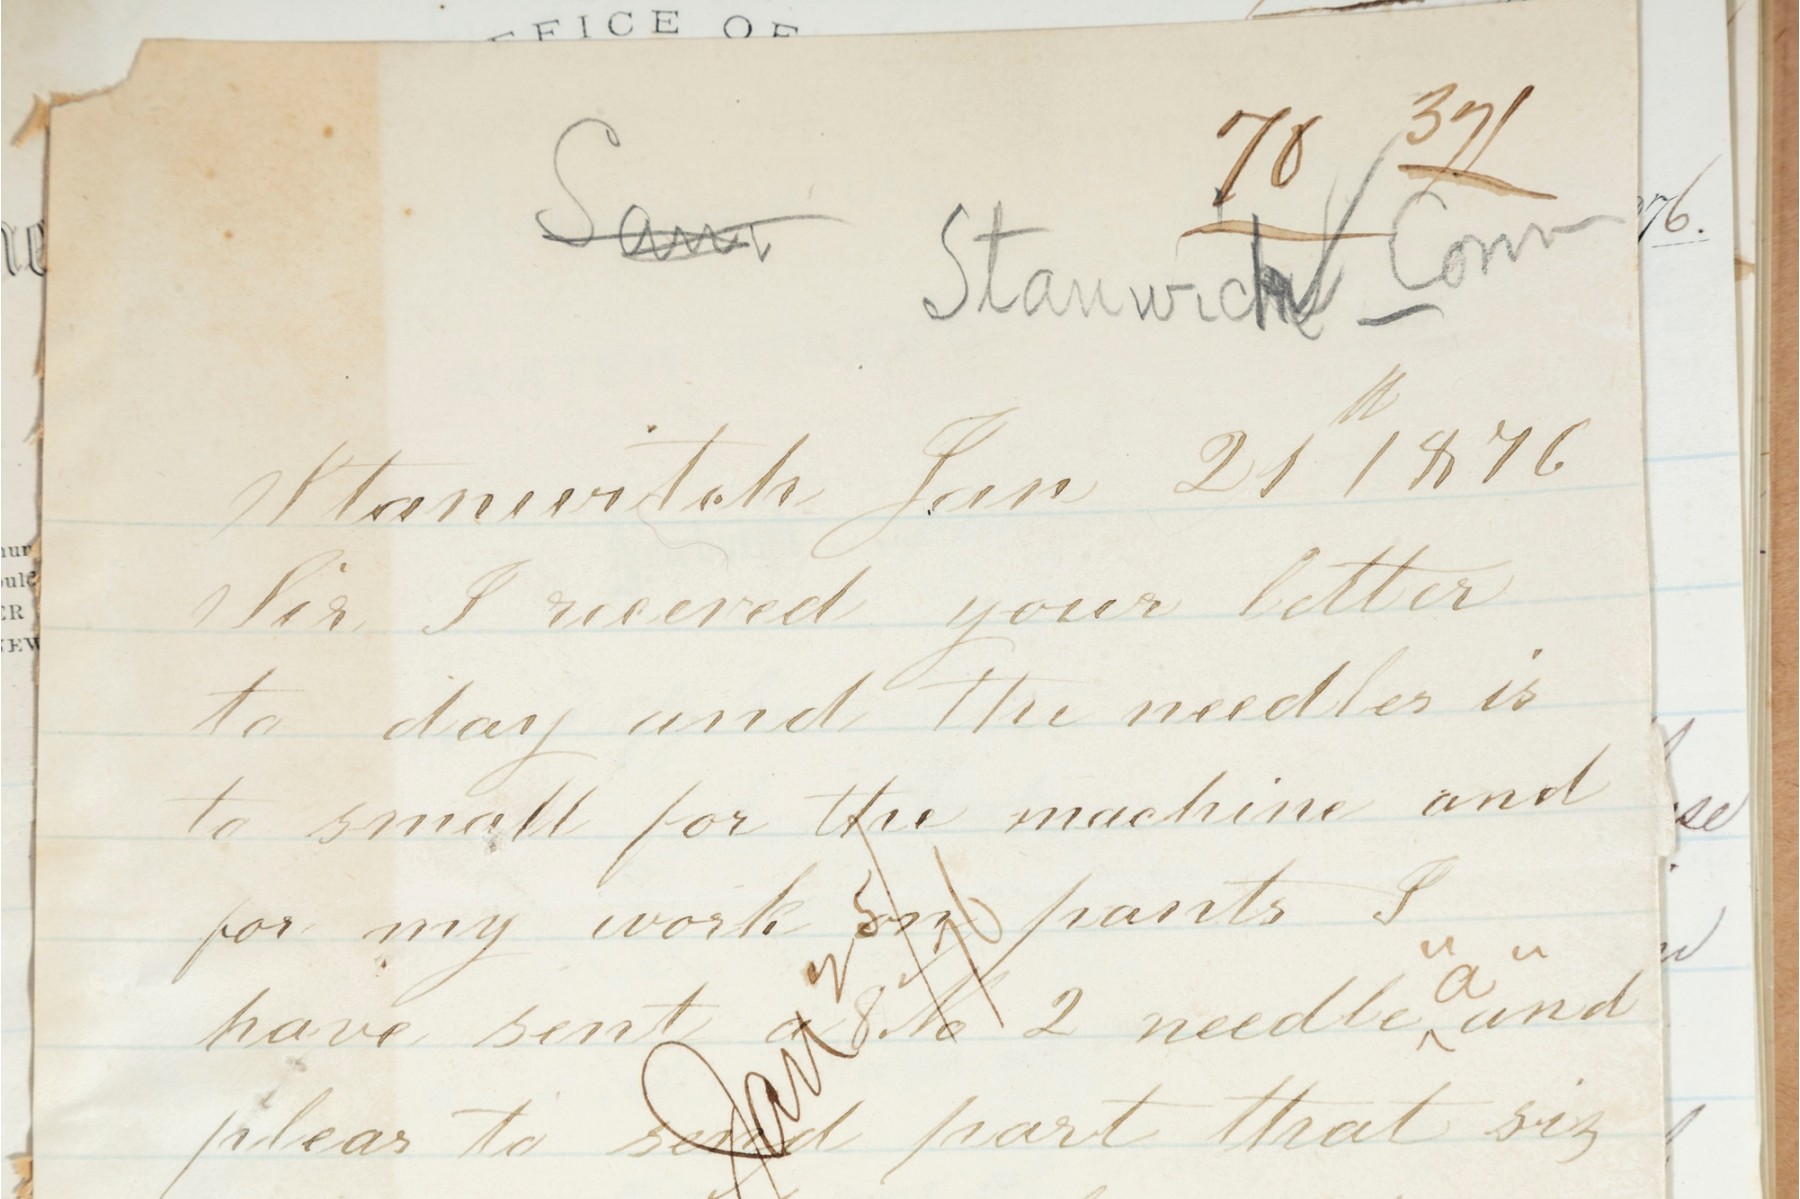 FFICE OF
Sam
78 371
Stanwich Conn
76.
Stanwitch Jan 21th 1876
Sir I receved your letter
to day and the needles is
to small for the machine and
for my work on pants I
have sent a No 2 needle "a" and
pleas to send part that siz
Jan 25/76
NEW